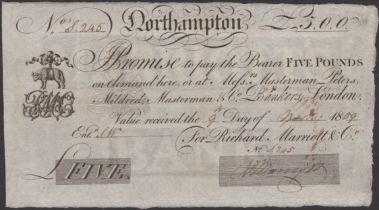 No. S.245 Northampton £5.0.0
I Promise to pay the Bearer FIVE POUNDS
on demand here, or at Messrs Masterman, Peters,
Mildred, Masterman & Co. Bankers, London.
Value received the 9th Day of 1809
Entd.
For Richard Marriott & Co.
No. S245
£ FIVE.